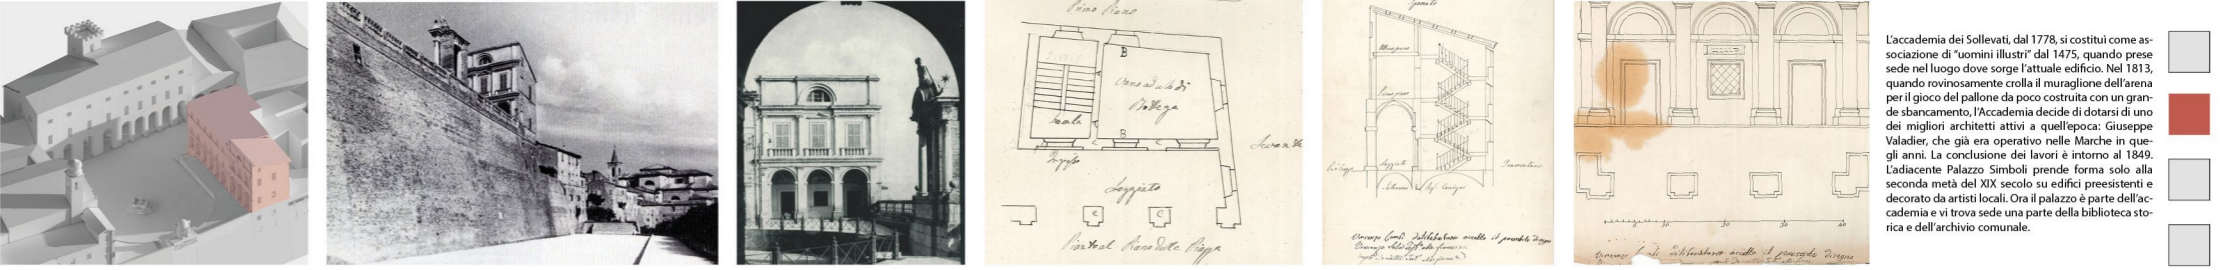 Primo Piano
B
vano ad uso di
Bottega
scale
A
A
B
C
C
Loggiato
C
C
Primo piano
Loggiato
10
20
30
40
L'accademia dei Sollevati, dal 1778, si costituì come as-
sociazione di "uomini illustri" dal 1475, quando prese
sede nel luogo dove sorge l'attuale edificio. Nel 1813,
quando rovinosamente crolla il muraglione dell'arena
per il gioco del pallone da poco costruita con un gran-
de sbancamento, l'Accademia decide di dotarsi di uno
dei migliori architetti attivi a quell'epoca: Giuseppe
Valadier, che già era operativo nelle Marche in que-
gli anni. La conclusione dei lavori è intorno al 1849.
L'adiacente Palazzo Simboli prende forma solo alla
seconda metà del XIX secolo su edifici preesistenti e
decorato da artisti locali. Ora il palazzo è parte dell'ac-
cademia e vi trova sede una parte della biblioteca sto-
rica e dell'archivio comunale.